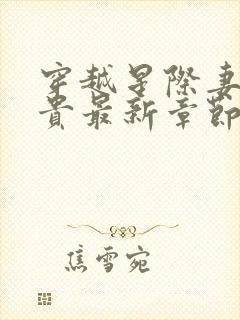 穿越星際妻
貴最新章節
焦雪宛